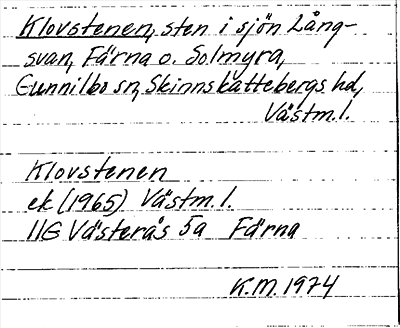 Klovstenen, sten i sjön Lång-
svan, Färna o. Solmyra,
Gunnilbo sn, Skinnskattebergs hd,
Västm.l.
Klovstenen
ek (1965) Västm.l.
11G Västerås 5a Färna
K.M. 1974